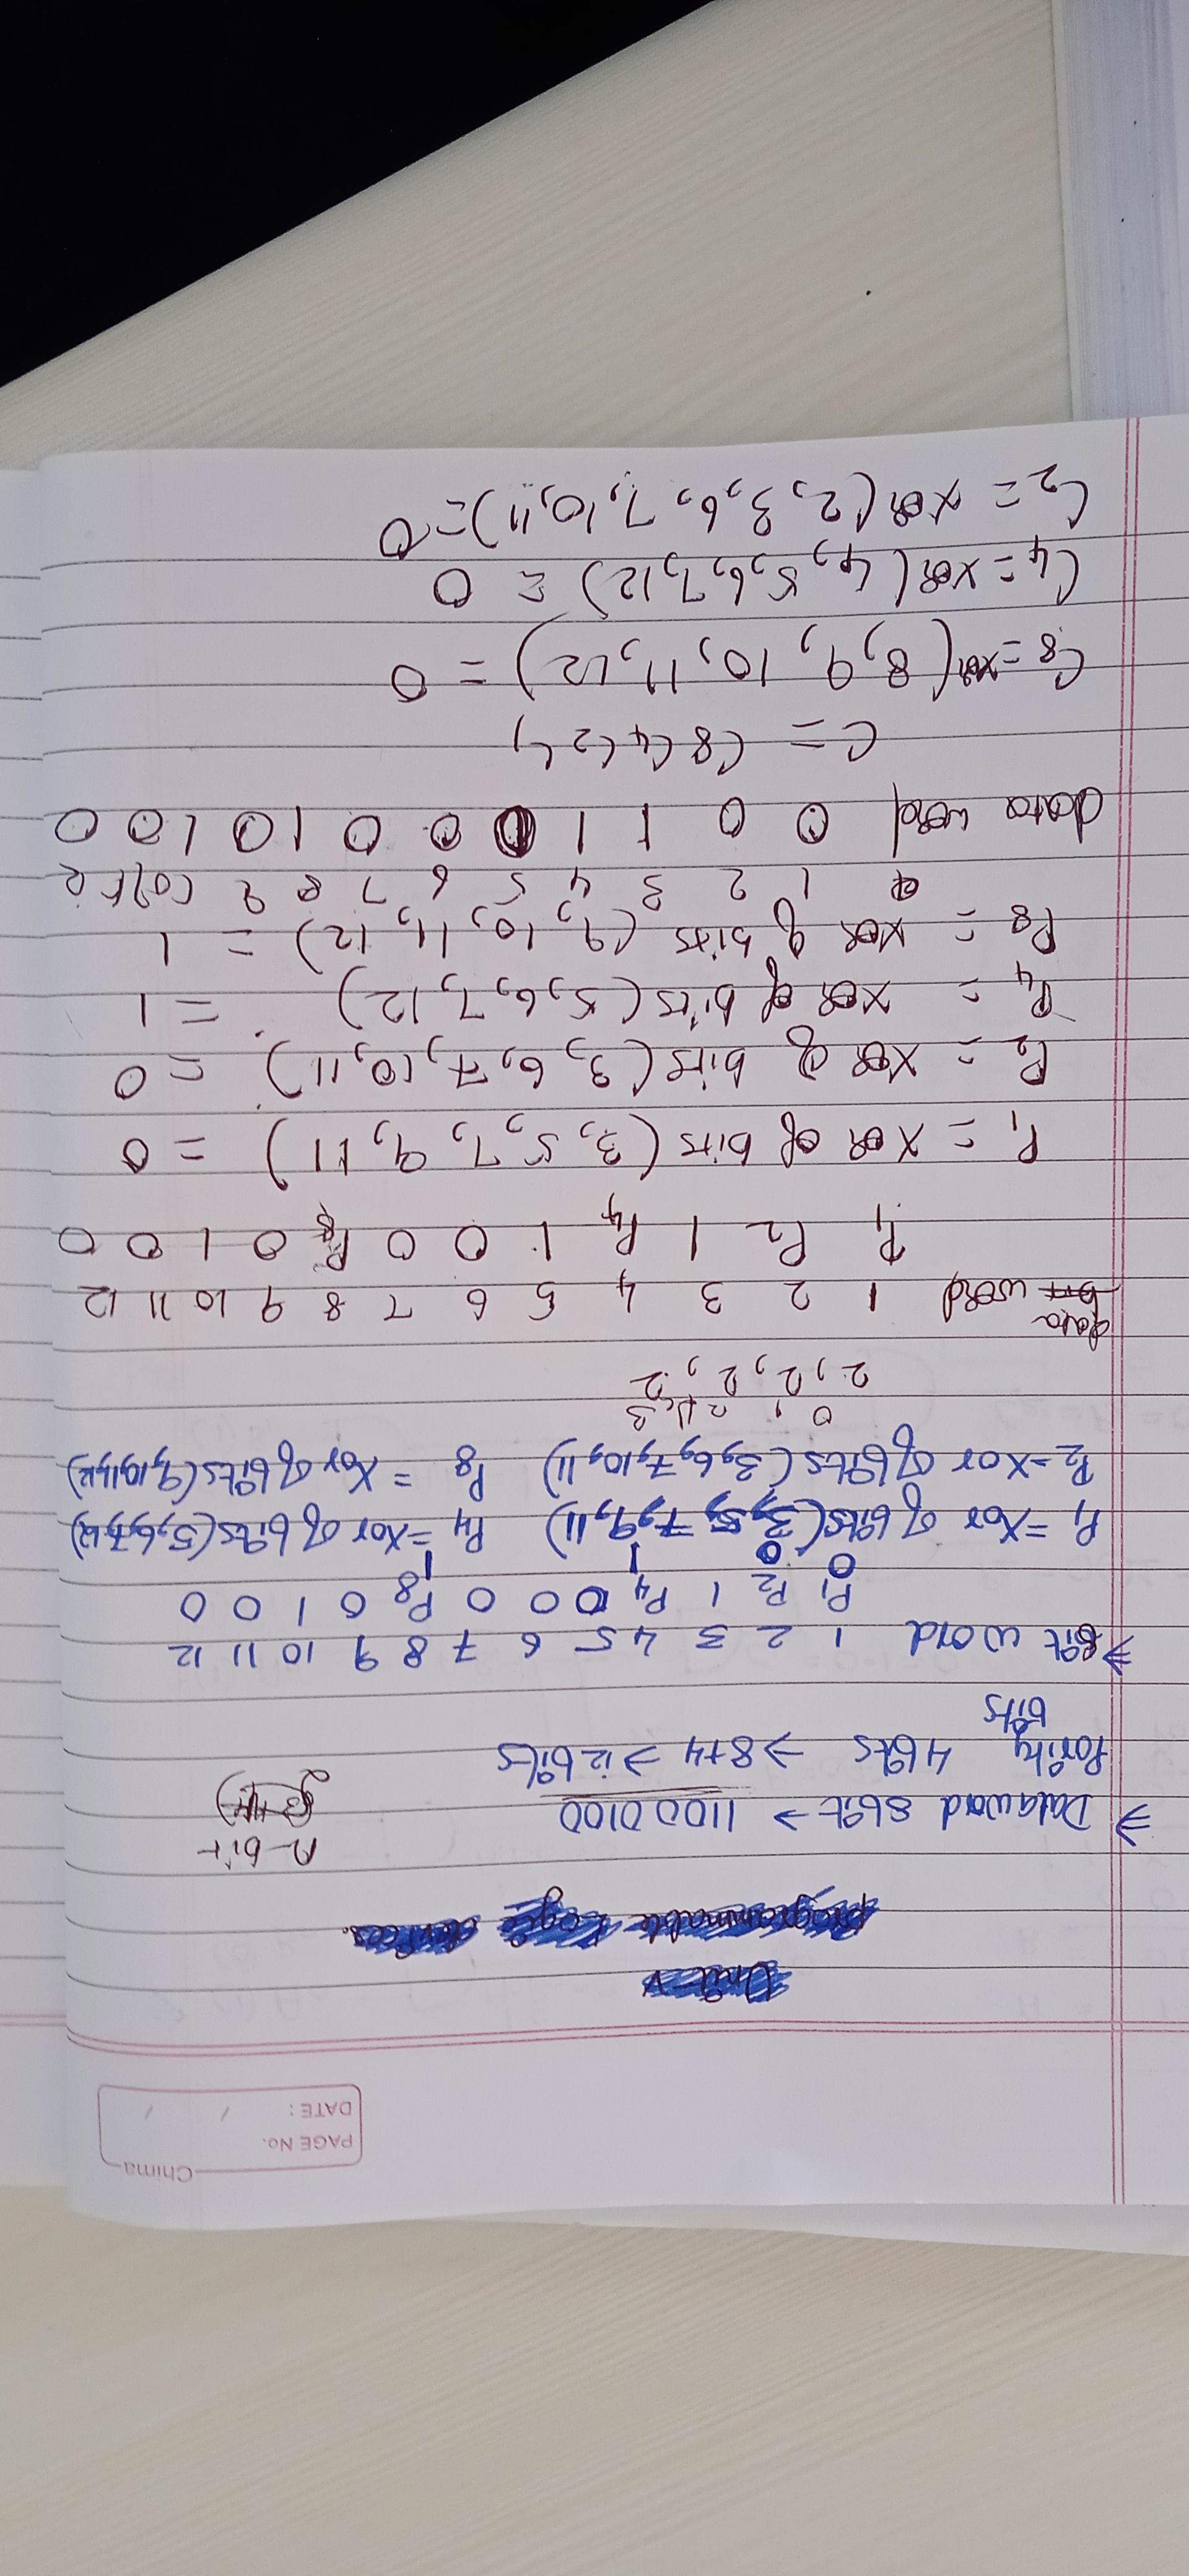 Chima
PAGE NO.
DATE: / /
Unit V
programmable Logic devices.
n-bit
⇒ Dataword 8bit → 11000100
Parity 4bits → 8+4 → 12bits
bits
⇒ Bit word 1 2 3 4 5 6 7 8 9 10 11 12
P1 P2 1 P4 0 0 0 P8 0 1 0 0
0 0 1 1
P1 = Xor of bits (3,5,7,9,11) P4 = Xor of bits (5,6,7,12)
P2 = Xor of bits (3,6,7,10,11) P8 = Xor of bits (9,10,11,12)
0 1 2 3
2, 2, 2, 2
data
word 1 2 3 4 5 6 7 8 9 10 11 12
P1 P2 1 P4 1 0 0 P8 0 1 0 0
P1 = XOR of bits (3,5,7,9,11) = 0
P2 = XOR of bits (3,6,7,10,11) = 0
P4 = XOR of bits (5,6,7,12) = 1
P8 = XOR of bits (9,10,11,12) = 1
1 2 3 4 5 6 7 8 9 10 11 12
data word 0 0 1 1 0 0 0 1 0 1 0 0
C = C8 C4 C2 C1
C8 = XOR (8,9,10,11,12) = 0
C4 = XOR (4,5,6,7,12) = 0
C2 = XOR (2,3,6,7,10,11) = 0